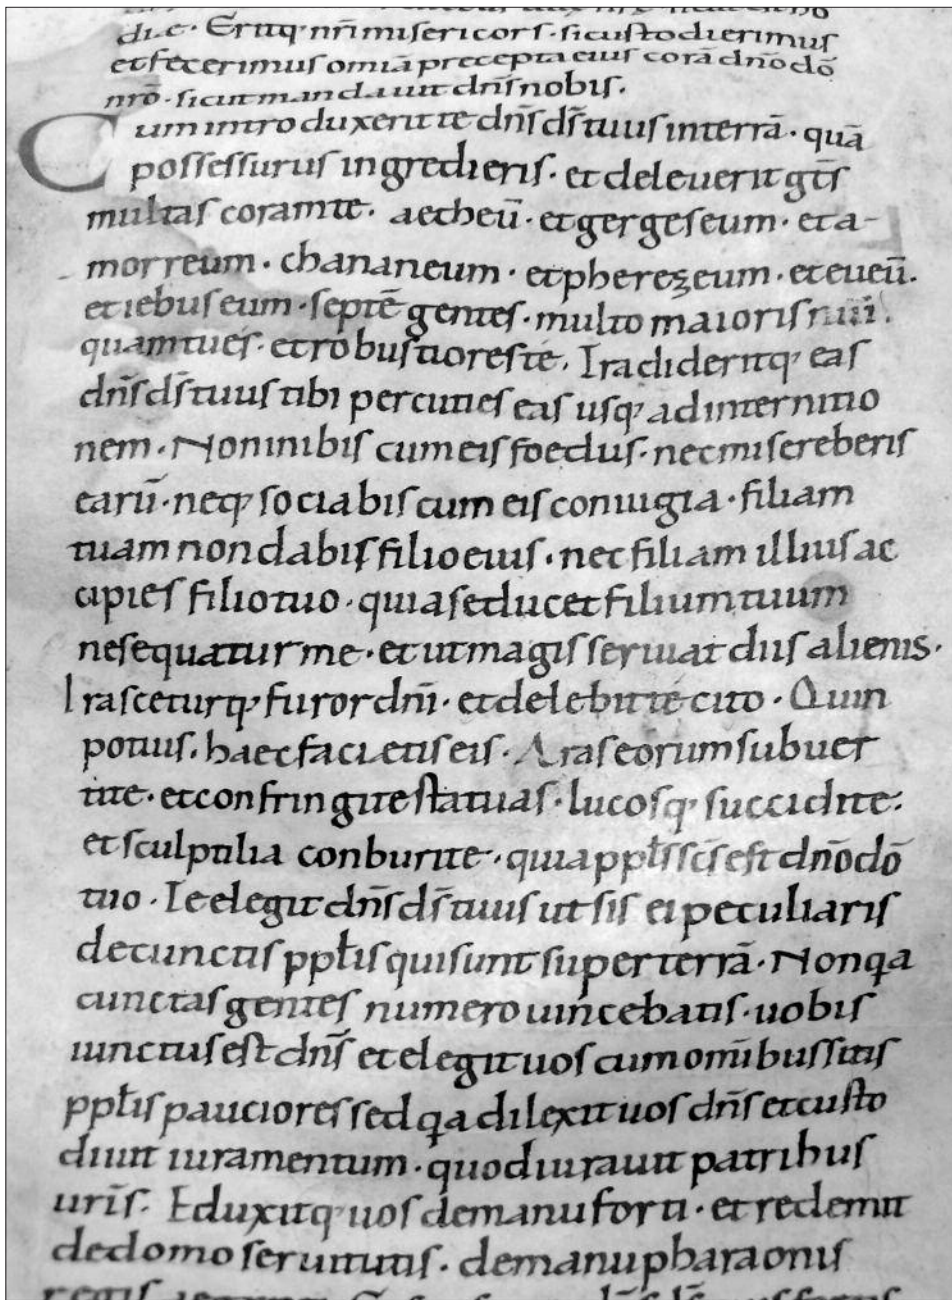 die · Eritq; nr̄i misericors · si custodierimus
et fecerimus om̄ia precepta eius corā dn̄o dō
nrō · sicut mandauit dn̄s nobis.
Cum introduxerit te dn̄s ds̄ tuus in terrā · quā
possessurus ingredieris · et deleuerit gt̄s
multas coram te · aetheū · et gergeseum · et a-
morreum · chananeum · et pherezeum · et eueū.
et iebuseum · septē gentes · multo maioris nūi.
quam tu es · et robustiores te. Tradideritq; eas
dn̄s ds̄ tuus tibi percuties eas usq; ad internitio
nem · Non inibis cum eis foedus · nec misereberis
earū · neq; sociabis cum eis coniugia · filiam
tuam non dabis filio eius · nec filiam illius ac
cipies filio tuo · quia seducet filium tuum
ne sequatur me · et ut magis seruiat diis alienis ·
Irasceturq; furor dn̄i · et delebit te cito · Quin
potius · haec facietis eis · Aras eorum subuer
tite · et confringite statuas · lucosq; succidite ·
et sculptilia conburite · quia ppl̄s sc̄s est dn̄o dō
tuo · Te elegit dn̄s ds̄ tuus ut sis ei peculiaris
de cunctis ppl̄is qui sunt super terrā · Non qa
cunctas gentes numero uincebatis · uobis
iunctus est dn̄s et elegit uos cum om̄ibus sitis
ppl̄is pauciores sed qa dilexit uos dn̄s et custo
diuit iuramentum · quod iurauit patribus
uris̄. Eduxitq; uos de manu forti · et redemit
de domo seruitutis · de manu pharaonis
regis